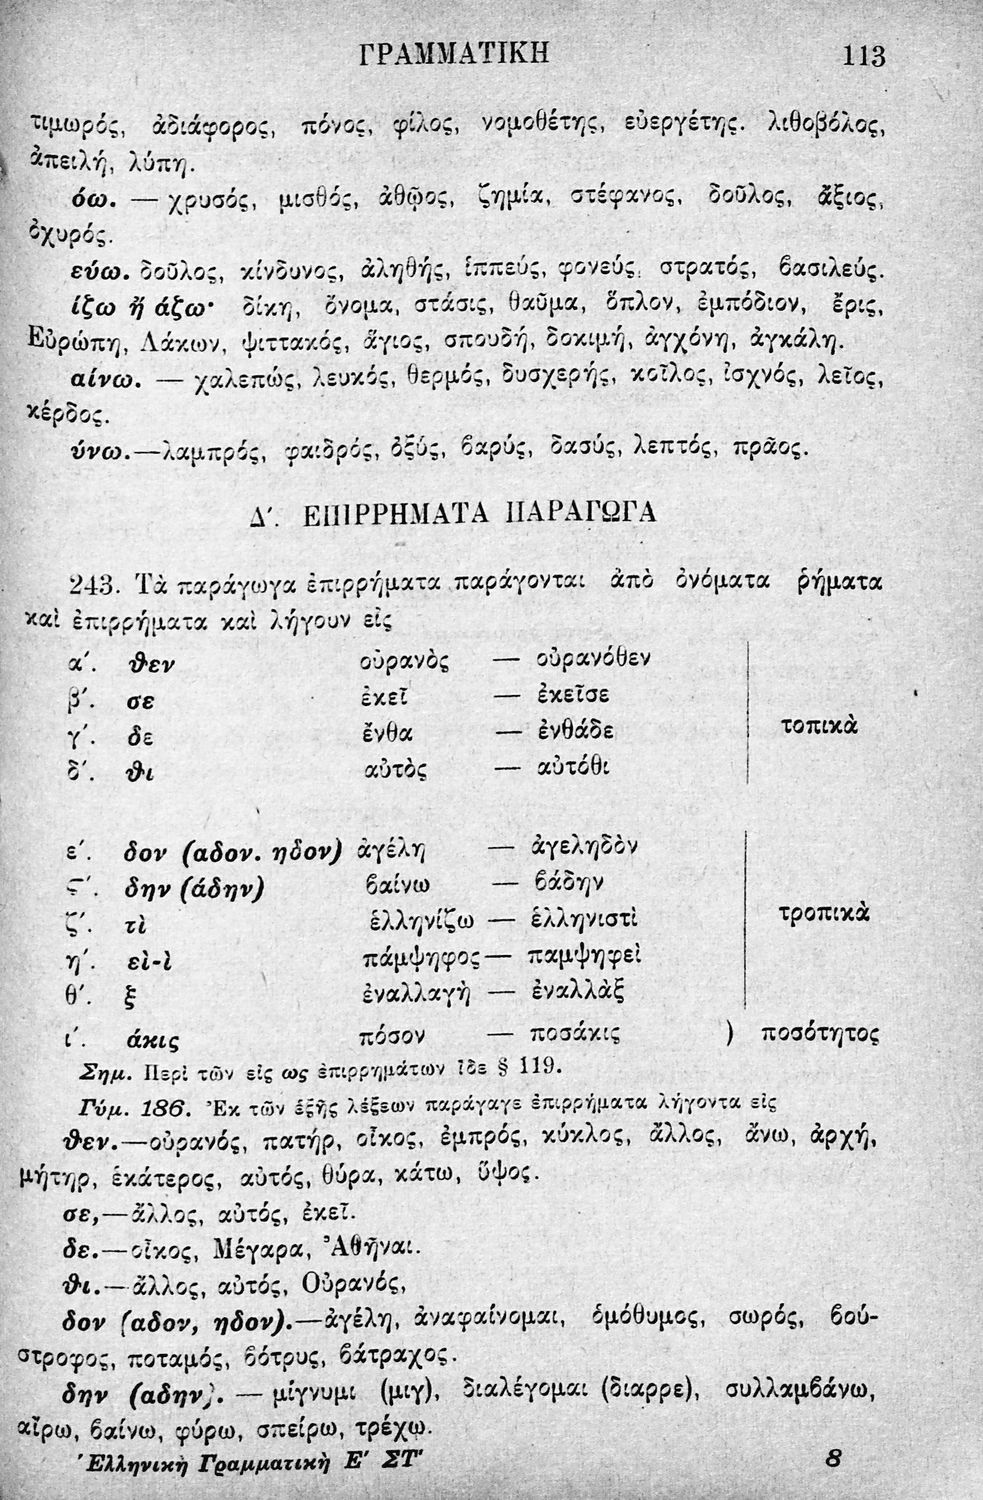 ΓΡΑΜΜΑΤΙΚΗ 113
τιμωρός, ἀδιάφορος, πόνος, φίλος, νομοθέτης, εὐεργέτης. λιθοβόλος,
ἀπειλή, λύπη.
όω. — χρυσός, μισθός, ἀθῷος, ζημία, στέφανος, δοῦλος, ἄξιος,
ὀχυρός.
εύω. δοῦλος, κίνδυνος, ἀληθής, ἱππεύς, φονεύς, στρατός, βασιλεύς.
ίζω ἤ άζω· δίκη, ὄνομα, στάσις, θαῦμα, ὅπλον, ἐμπόδιον, ἔρις,
Εὐρώπη, Λάκων, ψιττακός, ἅγιος, σπουδή, δοκιμή, ἀγχόνη, ἀγκάλη.
αίνω. — χαλεπώς, λευκός, θερμός, δυσχερής, κοῖλος, ἰσχνός, λεῖος,
κέρδος.
ύνω.—λαμπρός, φαιδρός, ὀξύς, βαρύς, δασύς, λεπτός, πρᾶος.
Δ′. ΕΠΙΡΡΗΜΑΤΑ ΠΑΡΑΓΩΓΑ
243. Τὰ παράγωγα ἐπιρρήματα παράγονται ἀπὸ ὀνόματα ῥήματα
καὶ ἐπιρρήματα καὶ λήγουν εἰς
α′. θεν οὐρανὸς — οὐρανόθεν
β′. σε ἐκεῖ — ἐκεῖσε
γ′. δε ἔνθα — ἐνθάδε τοπικὰ
δ′. θι αὐτὸς — αὐτόθι
ε′. δον (αδον. ηδον) ἀγέλη — ἀγεληδὸν
ϛ′. δην (άδην) βαίνω — βάδην
ζ′. τὶ ἑλληνίζω — ἑλληνιστὶ τροπικὰ
η′. εὶ-ὶ πάμψηφος — παμψηφεὶ
θ′. ξ ἐναλλαγὴ — ἐναλλὰξ
ι′. άκις πόσον — ποσάκις ) ποσότητος
Σημ. Περὶ τῶν εἰς ως ἐπιρρημάτων ἴδε § 119.
Γύμ. 186. Ἐκ τῶν ἑξῆς λέξεων παράγαγε ἐπιρρήματα λήγοντα εἰς
θεν.—οὐρανός, πατήρ, οἶκος, ἐμπρός, κύκλος, ἄλλος, ἄνω, ἀρχή,
μήτηρ, ἑκάτερος, αὐτός, θύρα, κάτω, ὕψος.
σε,—ἄλλος, αὐτός, ἐκεῖ.
δε.—οἶκος, Μέγαρα, Ἀθῆναι.
θι.—ἄλλος, αὐτός, Οὐρανός,
δον (αδον, ηδον).—ἀγέλη, ἀναφαίνομαι, ὁμόθυμος, σωρός, βού-
στροφος, ποταμός, βότρυς, βάτραχος.
δην (αδην). — μίγνυμι (μιγ), διαλέγομαι (διαρρε), συλλαμβάνω,
αἴρω, βαίνω, φύρω, σπείρω, τρέχω.
Ἑλληνικὴ Γραμματικὴ Ε′ ΣΤ′ 8